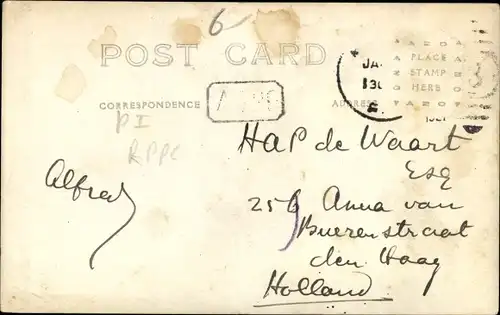 6
POST CARD
CORRESPONDENCE
ADDRESS
AZO
PLACE
STAMP
HERE
AZO
JA
30
P I
RPPC
HAP de Waart
Esq
Alfred
256 Anna van
Buerenstraat
den Haag
Holland